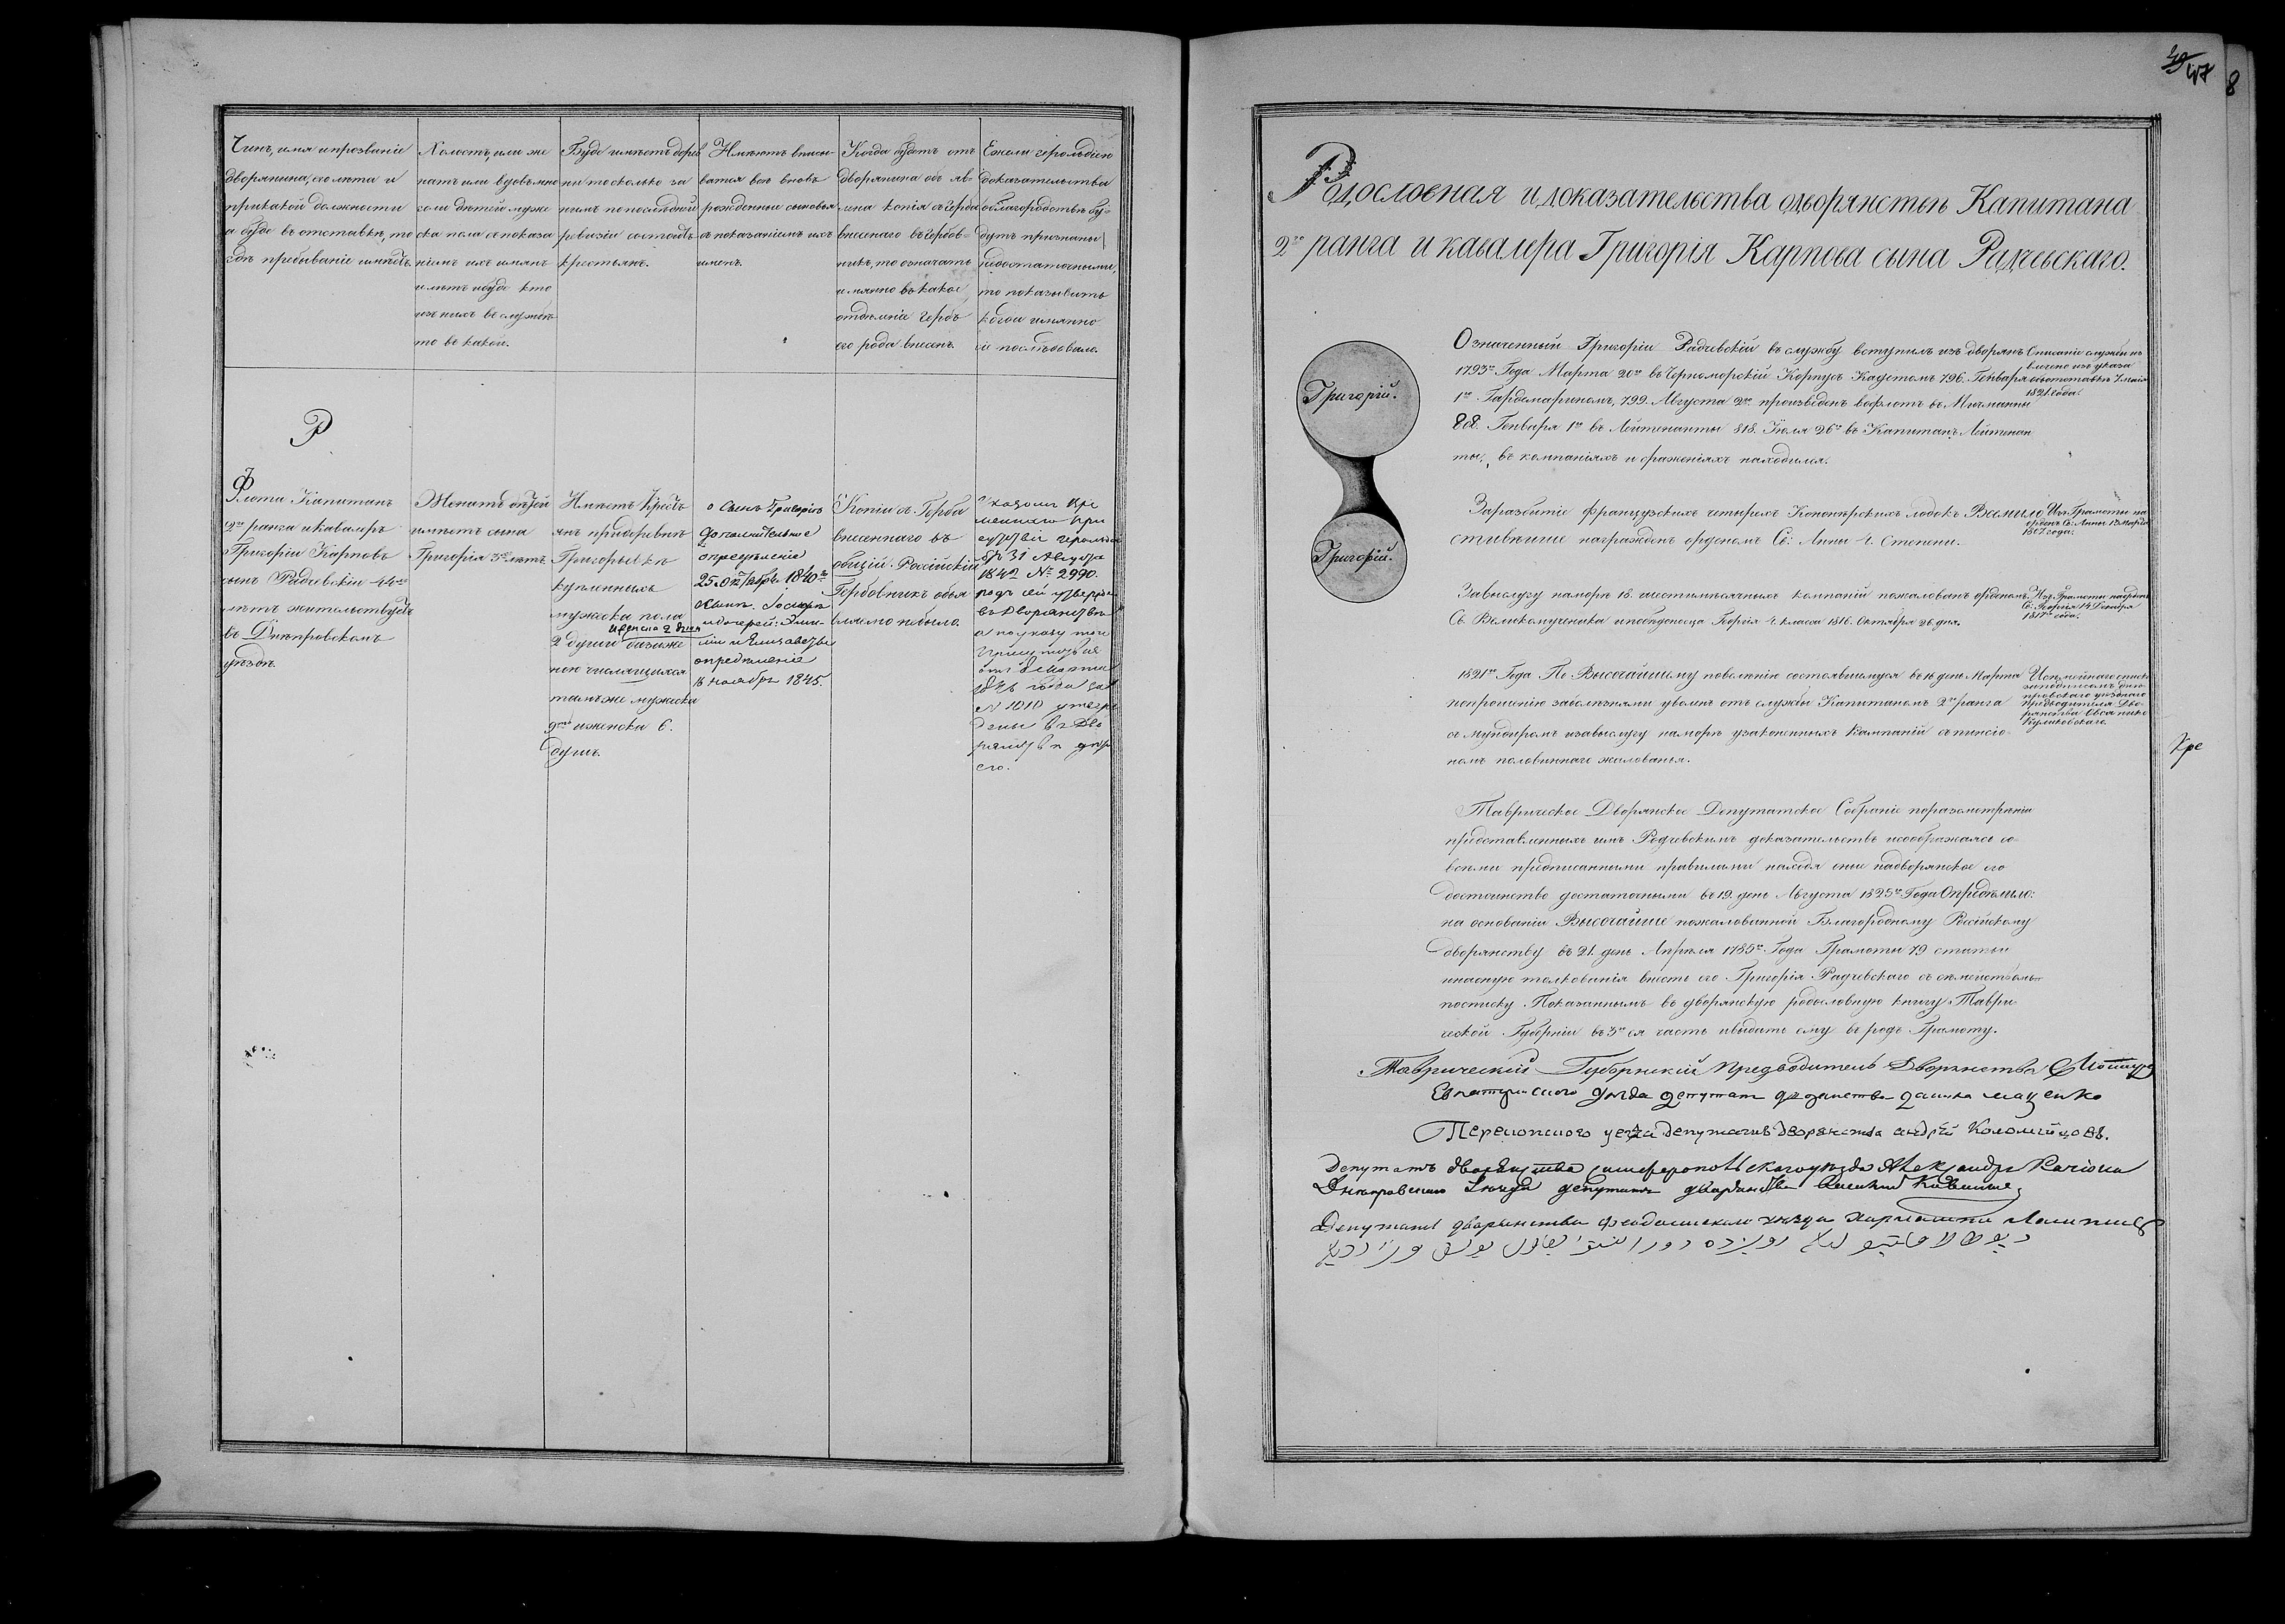 Чинъ, имя и прозваніе
дворянина, его лѣта и
при какой должности
а буде въ отставкѣ, то
гдѣ пребываніе имѣетъ.
Холостъ, или же
натъ или вдовъ, и но
сколь дѣтей муже
ска пола съ показа
ніемъ ихъ имянъ
и лѣтъ и буде кто
изъ нихъ въ службѣ
то въ какой.
Буде имѣетъ дерев
ни то сколько за
нимъ по послѣдней
ревизіи состоитъ
крестьянъ.
Имѣютъ вписы-
ватся всѣ вновь
рожденныи сыновья
съ показаніемъ ихъ
имянъ.
Когда будетъ отъ
дворянина объ яв-
лена копія съ герба
внесенаго въ Гербов-
никъ, то означать
имянно въ какое
отдѣленіе Гербъ
его рода внесенъ.
Ежели герольдіею
доказательства
о благородствѣ бу-
дутъ признаны
недостаточными,
то показывать
когда имянно
сіе послѣдовало.
Р
Флота Капитанъ
2го ранга и Кавалеръ
Григорій Карповъ
сынъ Радчевскій 44хъ
лѣтъ жительствуетъ
въ Днѣпровскомъ
уѣздѣ.
Женатъ дѣтей
имѣетъ сына
Григорія 3хъ лѣтъ.
Имѣетъ Кресть
янъ при деревнѣ
Григорьевкѣ
купленныхъ
мужеска пола
и женска 2 души
2 души
нои числящихся
тамъ же мужеска
9ть и женска 6.
душъ.
о Сынѣ Григоріѣ
дополнительное
опредѣленіе
25 Октября 1840го
о сынѣ
и дочерей: Эми-
ліи и Елисаветы
опредѣленіе
16 ноября 1845.
Копіи съ Герба
внесеннаго въ
общій Россійскій
Гербовникъ объя
влено не было.
Указомъ Вре
меннаго При
сутствія Герольдіи
31 Августа
1842 № 2990.
родъ сей утвержденъ
въ Дворянствѣ
а по указу того
Присутствія
отъ 8 Марта
1846 года за
№ 1010 утвер
дены въ Дво
рянствѣ дѣти
его.
49/47
8
Родословная и доказательства о дворянствѣ Капитана
2го ранга и кавалера Григорія Карпова сына Радчевскаго.
Григорій.
Григорій.
Означенный Григорій Радчевскій въ службу вступилъ изъ дворянъ
1793го Года Марта 20го въ Черноморскій Корпусъ Кадетомъ 796. Генваря
1го Гардемариномъ, 799. Августа 2го произвѣденъ во флотъ въ Мичманны
808. Генваря 1го въ Лейтенанты 818. Іюля 26го въ Капитанъ Лейтенан
ты., въ компаніяхъ и сраженіяхъ находился.
Описаніе службы из
влечено изъ указа
объ отставкѣ 7 маія
1821. года.
За разбитіе французскихъ четырехъ Канонѣрскихъ лодокъ Всемило
стивѣише награжденъ орденомъ Св: Анны 4. Степени.
Изъ Грамоты на
орденъ Св: Анны 13 Марта
1807. года.
За выслугу на морѣ 18. шестимѣсячныхъ компаній пожалованъ орденомъ
Св. Великомученика и побѣдоносца Георгія 4. класса 1816. Октября 26. дня.
Изъ Грамоты на орденъ
Св: Георгія 14 Декабря
1817го года.
1821го Года По Высочайшему повелѣнію состоявшемуся въ 16 день Марта
по прошенію за болѣзнями уволенъ отъ службы Капитаномъ 2го ранга
съ мундиромъ и за выслугу на морѣ узаконенныхъ Кампаній съ пинсіо-
номъ половиннаго жалованья.
Изъ имѣннаго списка
за подписомъ Днѣ-
провскаго уѣзднаго
Предводителя Дво-
рянства Овсянико
Куликовскаго.
Кре
Таврическое Дворянское Депутатское Собраніе по разсмотрѣніи
представленныхъ имъ Радчевскимъ доказательствъ и соображаясь со
всѣми предписанными правилами находя оные на дворянское его
достоинство достаточными въ 19. день Августа 1825го Года Опредѣлило:
на основаніи Высочайше пожалованной Благородному Россійскому
дворянству въ 21. день Апрѣля 1785го Года Грамоты 79 статьи
и на оную толкованія внесть его Григорія Радчевскаго съ семействомъ
по списку Показаннымъ въ дворянскую родословную книгу Таври-
ческой Губерніи въ 3ю ея часть и выдать ему въ родъ Грамоту.
Таврическій Губернскій Предводитель Дворянства
Евпаторійского уѣзда депутатъ дворянства
Перекопского уезда депутатъ дворянства андрѣй Коломѣйцовъ.
Депутатъ дворянства симферопольскаго уѣзда Александръ
Днѣпровскаго уѣзда депутатъ дворянства
Депутатъ дворянства феодосискаго уезда